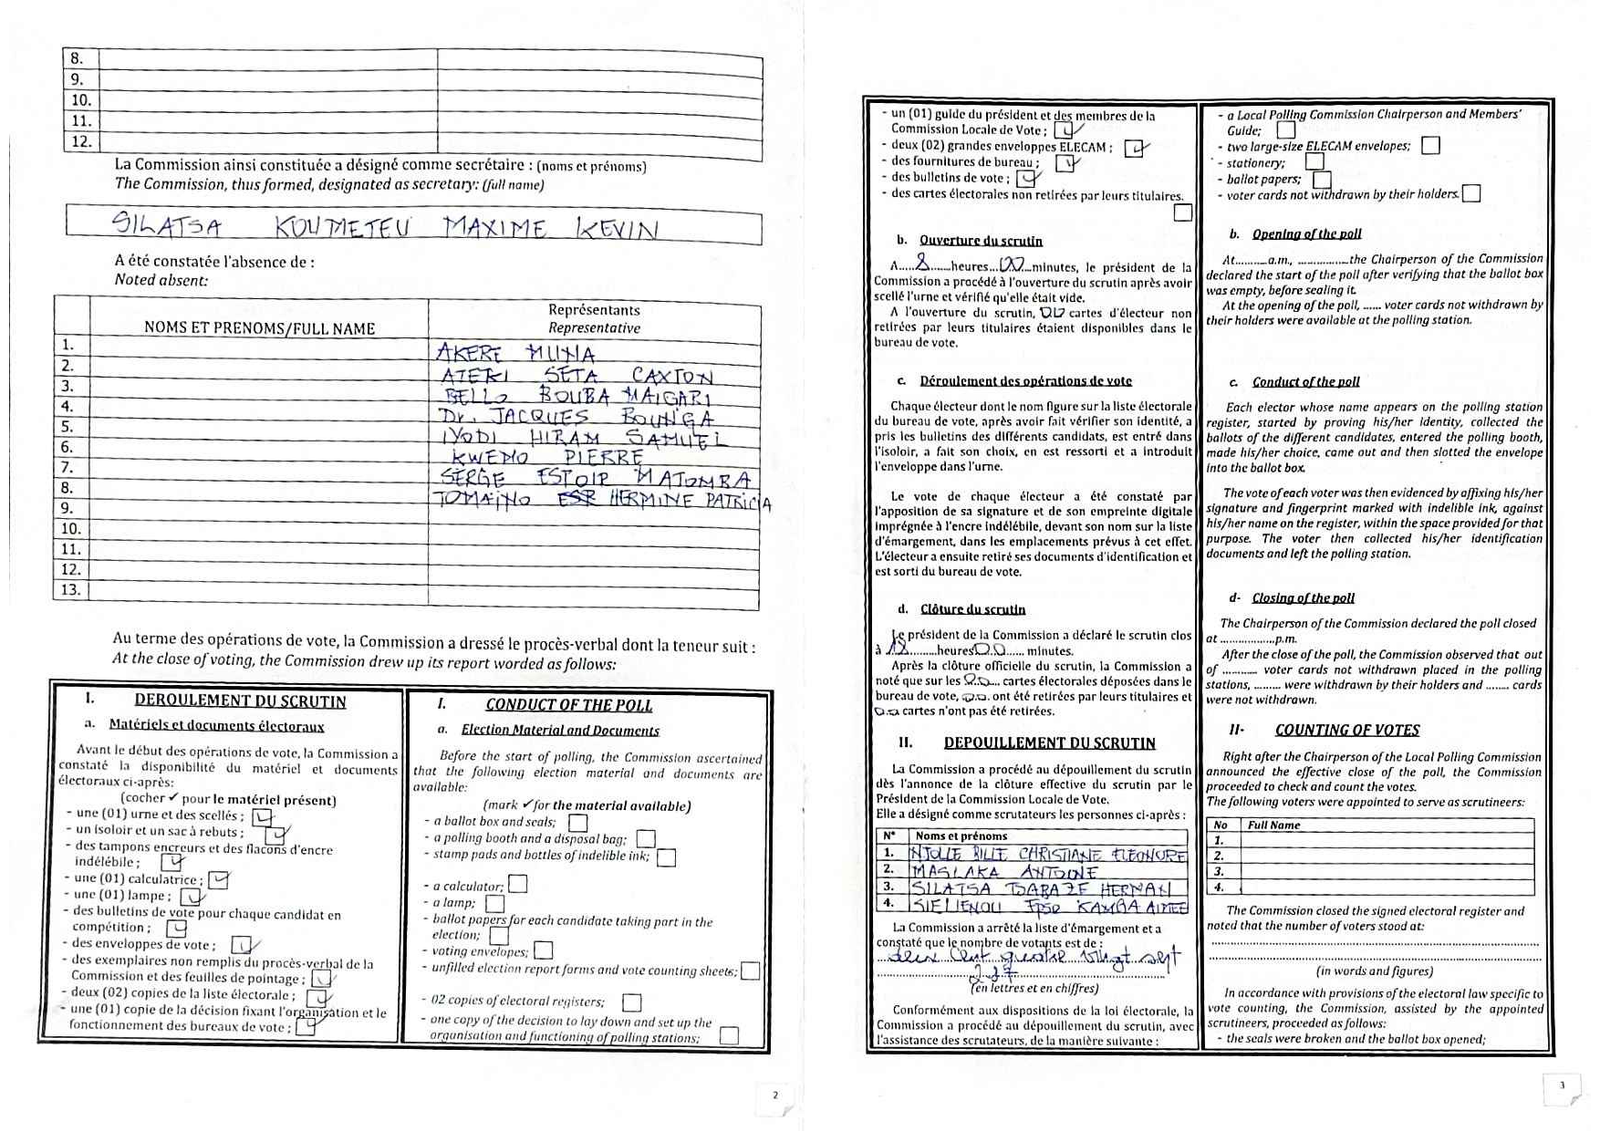 8.
9.
10.
11.
12.
La Commission ainsi constituée a désigné comme secrétaire : (noms et prénoms)
The Commission, thus formed, designated as secretary: (full name)
SILATSA KOUMETEU MAXIME KEVIN
A été constatée l'absence de :
Noted absent:
NOMS ET PRENOMS/FULL NAME
Représentants
Representative
1. AKERE MUNA
2. ATEKI SETA CAXTON
3. BELLO BOUBA MAIGARI
4. Dr. JACQUES BOUNGA
5. IYODI HIRAM SAMUEL
6. KWEMO PIERRE
7. SERGE ESTOIR MATOMBA
8. TOMAINO HERMINE PATRICIA
9.
10.
11.
12.
13.
Au terme des opérations de vote, la Commission a dressé le procès-verbal dont la teneur suit :
At the close of voting, the Commission drew up its report worded as follows:
I. DEROULEMENT DU SCRUTIN
a. Matériels et documents électoraux
Avant le début des opérations de vote, la Commission a
constaté la disponibilité du matériel et documents
électoraux ci-après:
(cocher ✓ pour le matériel présent)
- une (01) urne et des scellés ;
- un isoloir et un sac à rebuts ;
- des tampons encreurs et des flacons d'encre
indélébile ;
- une (01) calculatrice ;
- une (01) lampe ;
- des bulletins de vote pour chaque candidat en
compétition ;
- des enveloppes de vote ;
- des exemplaires non remplis du procès-verbal de la
Commission et des feuilles de pointage ;
- deux (02) copies de la liste électorale ;
- une (01) copie de la décision fixant l'organisation et le
fonctionnement des bureaux de vote ;
I. CONDUCT OF THE POLL
a. Election Material and Documents
Before the start of polling, the Commission ascertained
that the following election material and documents are
available:
(mark ✓for the material available)
- a ballot box and seals;
- a polling booth and a disposal bag;
- stamp pads and bottles of indelible ink;
- a calculator;
- a lamp;
- ballot papers for each candidate taking part in the
election;
- voting envelopes;
- unfilled election report forms and vote counting sheets;
- 02 copies of electoral registers;
- one copy of the decision to lay down and set up the
organisation and functioning of polling stations;
2
- un (01) guide du président et des membres de la
Commission Locale de Vote ;
- deux (02) grandes enveloppes ELECAM ;
- des fournitures de bureau ;
- des bulletins de vote ;
- des cartes électorales non retirées par leurs titulaires.
b. Ouverture du scrutin
A.....8......heures...00...minutes, le président de la
Commission a procédé à l'ouverture du scrutin après avoir
scellé l'urne et vérifié qu'elle était vide.
A l'ouverture du scrutin, 00 cartes d'électeur non
retirées par leurs titulaires étaient disponibles dans le
bureau de vote.
c. Déroulement des opérations de vote
Chaque électeur dont le nom figure sur la liste électorale
du bureau de vote, après avoir fait vérifier son identité, a
pris les bulletins des différents candidats, est entré dans
l'isoloir, a fait son choix, en est ressorti et a introduit
l'enveloppe dans l'urne.
Le vote de chaque électeur a été constaté par
l'apposition de sa signature et de son empreinte digitale
imprégnée à l'encre indélébile, devant son nom sur la liste
d'émargement, dans les emplacements prévus à cet effet.
L'électeur a ensuite retiré ses documents d'identification et
est sorti du bureau de vote.
d. Clôture du scrutin
Le président de la Commission a déclaré le scrutin clos
à 18.........heures00...... minutes.
Après la clôture officielle du scrutin, la Commission a
noté que sur les 00.... cartes électorales déposées dans le
bureau de vote, 00. ont été retirées par leurs titulaires et
00 cartes n'ont pas été retirées.
II. DEPOUILLEMENT DU SCRUTIN
La Commission a procédé au dépouillement du scrutin
dès l'annonce de la clôture effective du scrutin par le
Président de la Commission Locale de Vote.
Elle a désigné comme scrutateurs les personnes ci-après :
N° Noms et prénoms
1. NJOLLE BILLE CHRISTIANE ELEONORE
2. MASLAKA ANTOINE
3. SILATSA TSABAZE HERMAN
4. SIELIENOU KAMBA AIMEE
La Commission a arrêté la liste d'émargement et a
constaté que le nombre de votants est de :
deux cent quatre vingt sept
287
(en lettres et en chiffres)
Conformément aux dispositions de la loi électorale, la
Commission a procédé au dépouillement du scrutin, avec
l'assistance des scrutateurs, de la manière suivante :
- a Local Polling Commission Chairperson and Members'
Guide;
- two large-size ELECAM envelopes;
- stationery;
- ballot papers;
- voter cards not withdrawn by their holders.
b. Opening of the poll
At..........a.m., .................the Chairperson of the Commission
declared the start of the poll after verifying that the ballot box
was empty, before sealing it.
At the opening of the poll, ...... voter cards not withdrawn by
their holders were available at the polling station.
c. Conduct of the poll
Each elector whose name appears on the polling station
register, started by proving his/her identity, collected the
ballots of the different candidates, entered the polling booth,
made his/her choice, came out and then slotted the envelope
into the ballot box.
The vote of each voter was then evidenced by affixing his/her
signature and fingerprint marked with indelible ink, against
his/her name on the register, within the space provided for that
purpose. The voter then collected his/her identification
documents and left the polling station.
d- Closing of the poll
The Chairperson of the Commission declared the poll closed
at ..................p.m.
After the close of the poll, the Commission observed that out
of ........... voter cards not withdrawn placed in the polling
stations, ......... were withdrawn by their holders and ........ cards
were not withdrawn.
II- COUNTING OF VOTES
Right after the Chairperson of the Local Polling Commission
announced the effective close of the poll, the Commission
proceeded to check and count the votes.
The following voters were appointed to serve as scrutineers:
No Full Name
1.
2.
3.
4.
The Commission closed the signed electoral register and
noted that the number of voters stood at:
(in words and figures)
In accordance with provisions of the electoral law specific to
vote counting, the Commission, assisted by the appointed
scrutineers, proceeded as follows:
- the seals were broken and the ballot box opened;
3